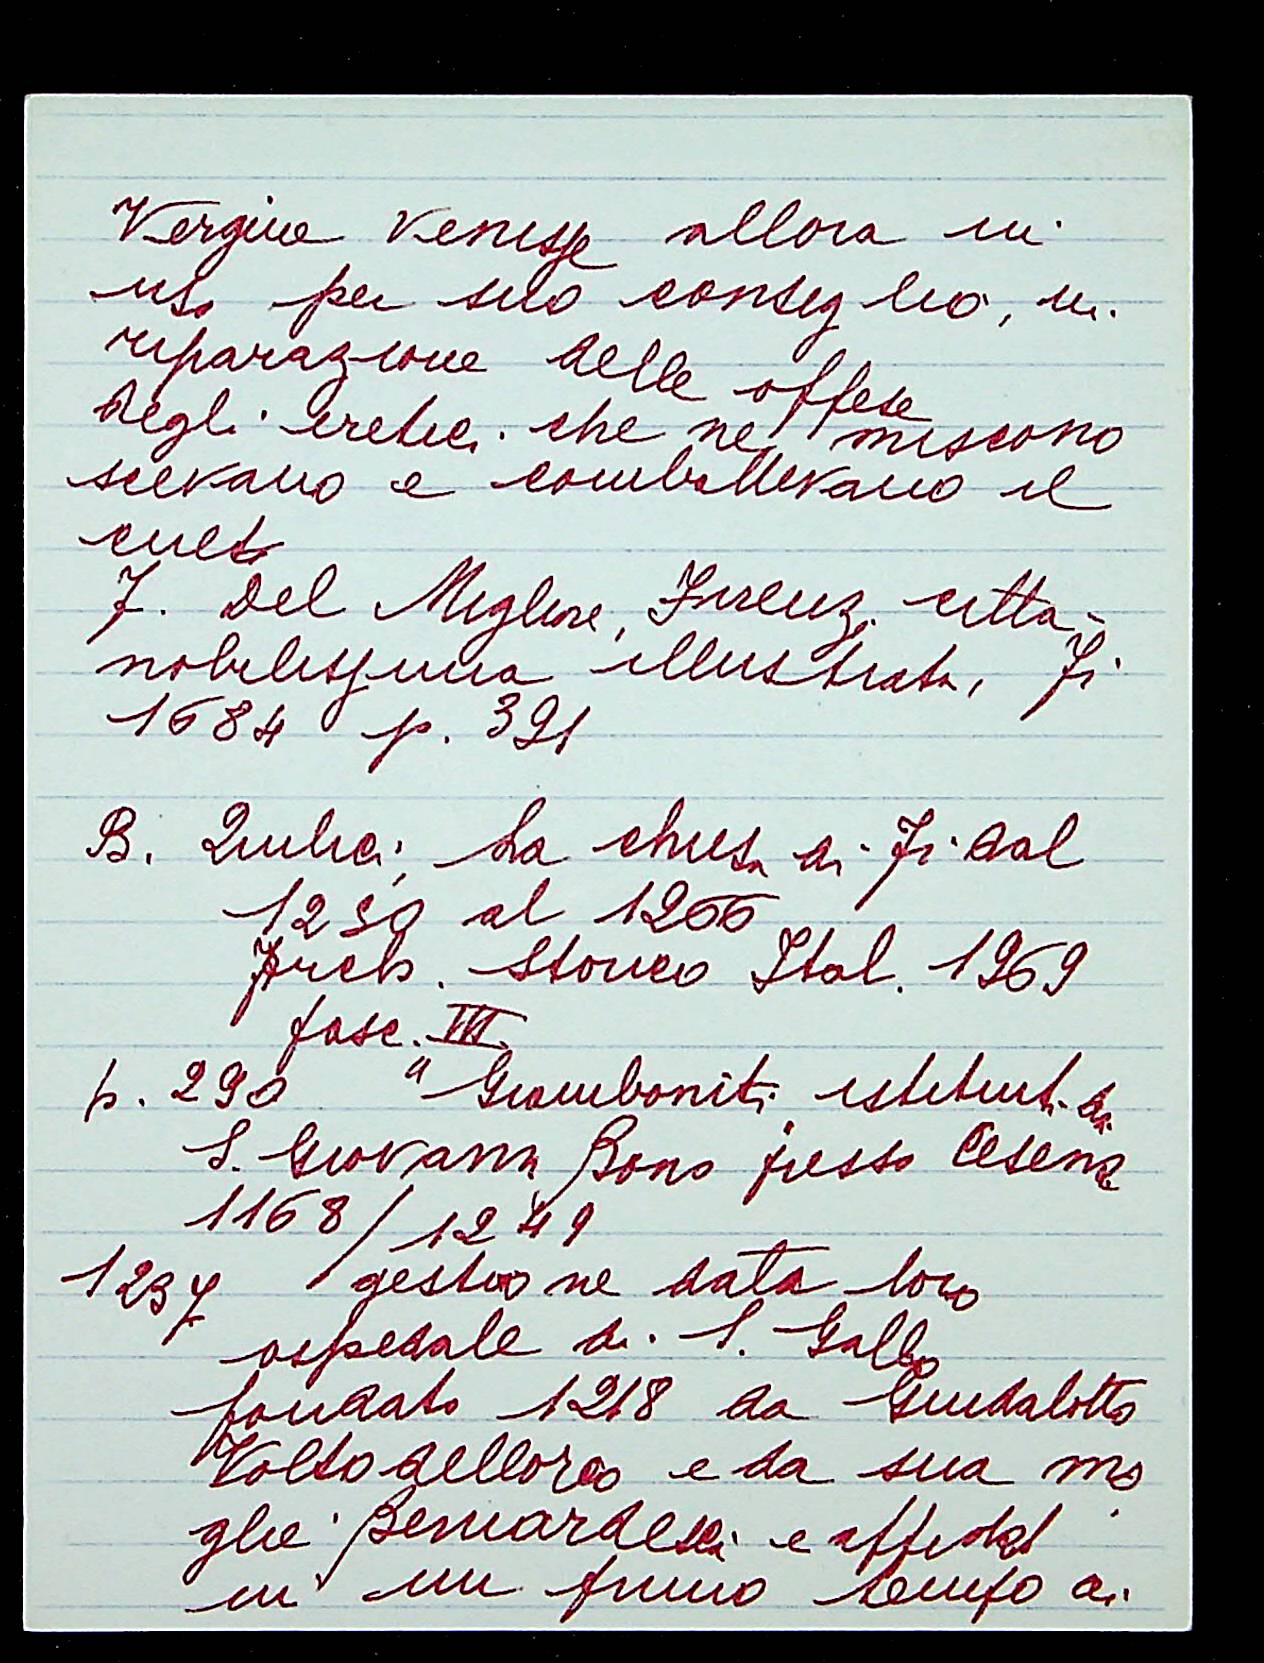 Vergine venisse allora in
uso per suo consiglio, in
riparazione delle offese
degli eretici che ne miscono
scevano e combattevano il
culto
F. Del Migliore, Firenze città
nobilissima illustrata, Fi
1684 p. 391
B. Quilici, La chiesa di Fi dal
1230 al 1266
Arch. Storico Ital. 1969
fasc. III
p. 290 "Giamboniti istituiti da
S. Giovanni Bono presso Cesena
1168/1249
1237 gestione data loro
ospedale di S. Gallo
fondato 1218 da Guidalotto
Voltodellorco e da sua mo
glie Bernardesca e affidat
in un primo tempo ai